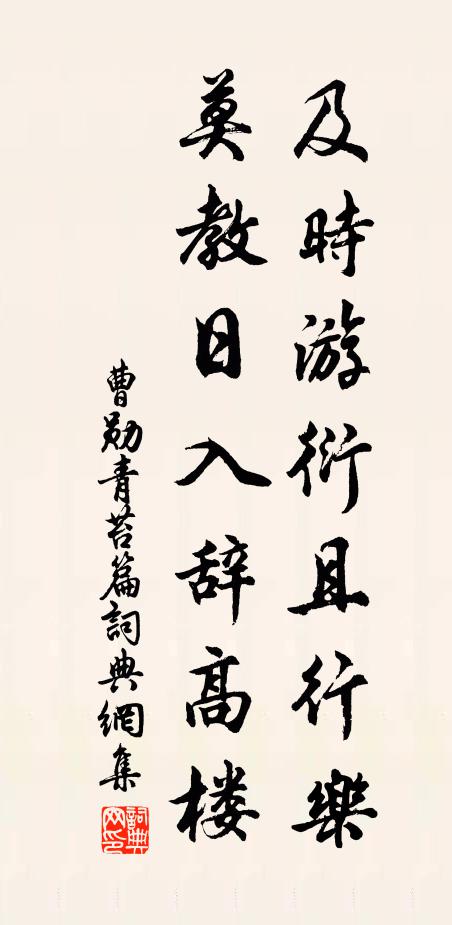 及時游衍且行樂
莫教日入辞高楼
曹勛青苔篇詞典網集
詞典网印